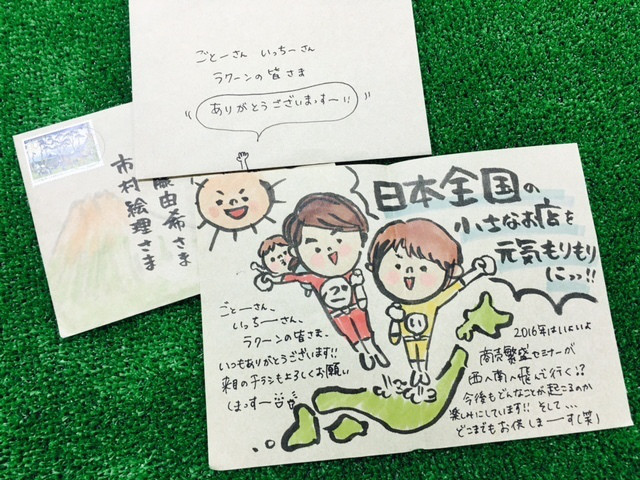 ごとーさん いっちーさん
ラクーンの皆さま
ありがとうございまっすー!!
藤由希さま
市村絵理さま
日本全国の
小さなお店を
元気もりもり
にっっ!!
ごとーさん、
いっちーさん、
ラクーンの皆さま、
いつもありがとうございます!!
来月のチラシもよろしくお願い
しまっすー
ご
い
2016年はいよいよ
商売繁盛セミナーが
西へ南へ飛んで行く!?
今後もどんなことが起こるのか
楽しみにしています!! そして...
どこまでもお供しまーす(笑)